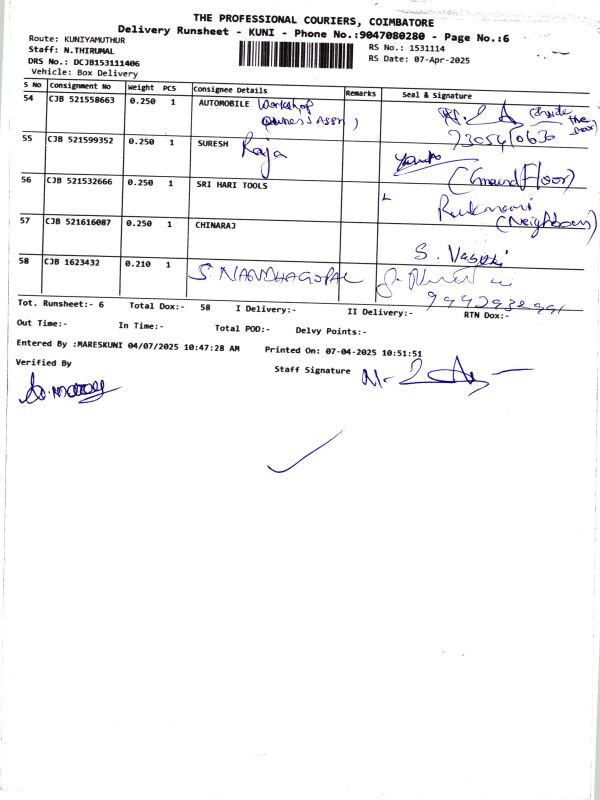 THE PROFESSIONAL COURIERS, COIMBATORE
Delivery Runsheet - KUNI - Phone No.:9047080280 - Page No.:6
Route: KUNIYAMUTHUR
RS No.: 1531114
Staff: N.THIRUMAL
RS Date: 07-Apr-2025
DRS No.: DCJB153111406
Vehicle: Box Delivery
S No Consignment No Weight PCS Consignee Details Remarks Seal & Signature
54 CJB 521558663 0.250 1 AUTOMOBILE Workshop (Inside
(Owners Assn) the
door)
55 CJB 521599352 0.250 1 SURESH Raja
(Ground Floor)
56 CJB 521532666 0.250 1 SRI HARI TOOLS
Rukmani
(Neighbour)
57 CJB 521616087 0.250 1 CHINARAJ
S.
58 CJB 1623432 0.210 1 S. NANDHAGOPAL
Tot. Runsheet:- 6 Total Dox:- 58 I Delivery:- II Delivery:- RTN Dox:-
Out Time:- In Time:- Total POD:- Delvy Points:-
Entered By :MARESKUNI 04/07/2025 10:47:28 AM Printed On: 07-04-2025 10:51:51
Verified By
Staff Signature